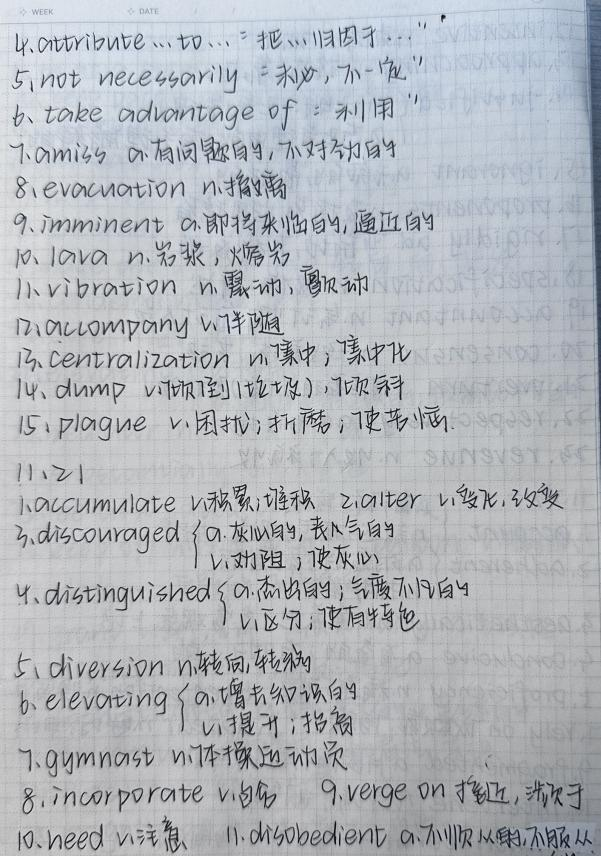 WEEK DATE
4.attribute...to...="把...归因于..."
5.not necessarily ="未必,不一定"
6.take advantage of ="利用"
7.amiss a.有问题的,不对劲的
8.evacuation n.撤离
9.imminent a.即将来临的,逼近的
10.lava n.岩浆,熔岩
11.vibration n.震动,颤动
12.accompany v.伴随
13.centralization n.集中;集中化
14.dump v.倾倒(垃圾),倾斜
15.plague v.困扰;折磨;使苦恼
11.21
1.accumulate v.积累,堆积 2.alter v.变化,改变
3.discouraged a.灰心的,丧气的
v.劝阻;使灰心
4.distinguished a.杰出的;气度不凡的
v.区分;使有特色
5.diversion n.转向,转移
6.elevating a.增长知识的
v.提升;抬高
7.gymnast n.体操运动员
8.incorporate v.包含 9.verge on 接近,濒于
10.heed v.注意 11.disobedient a.不顺从的,不服从